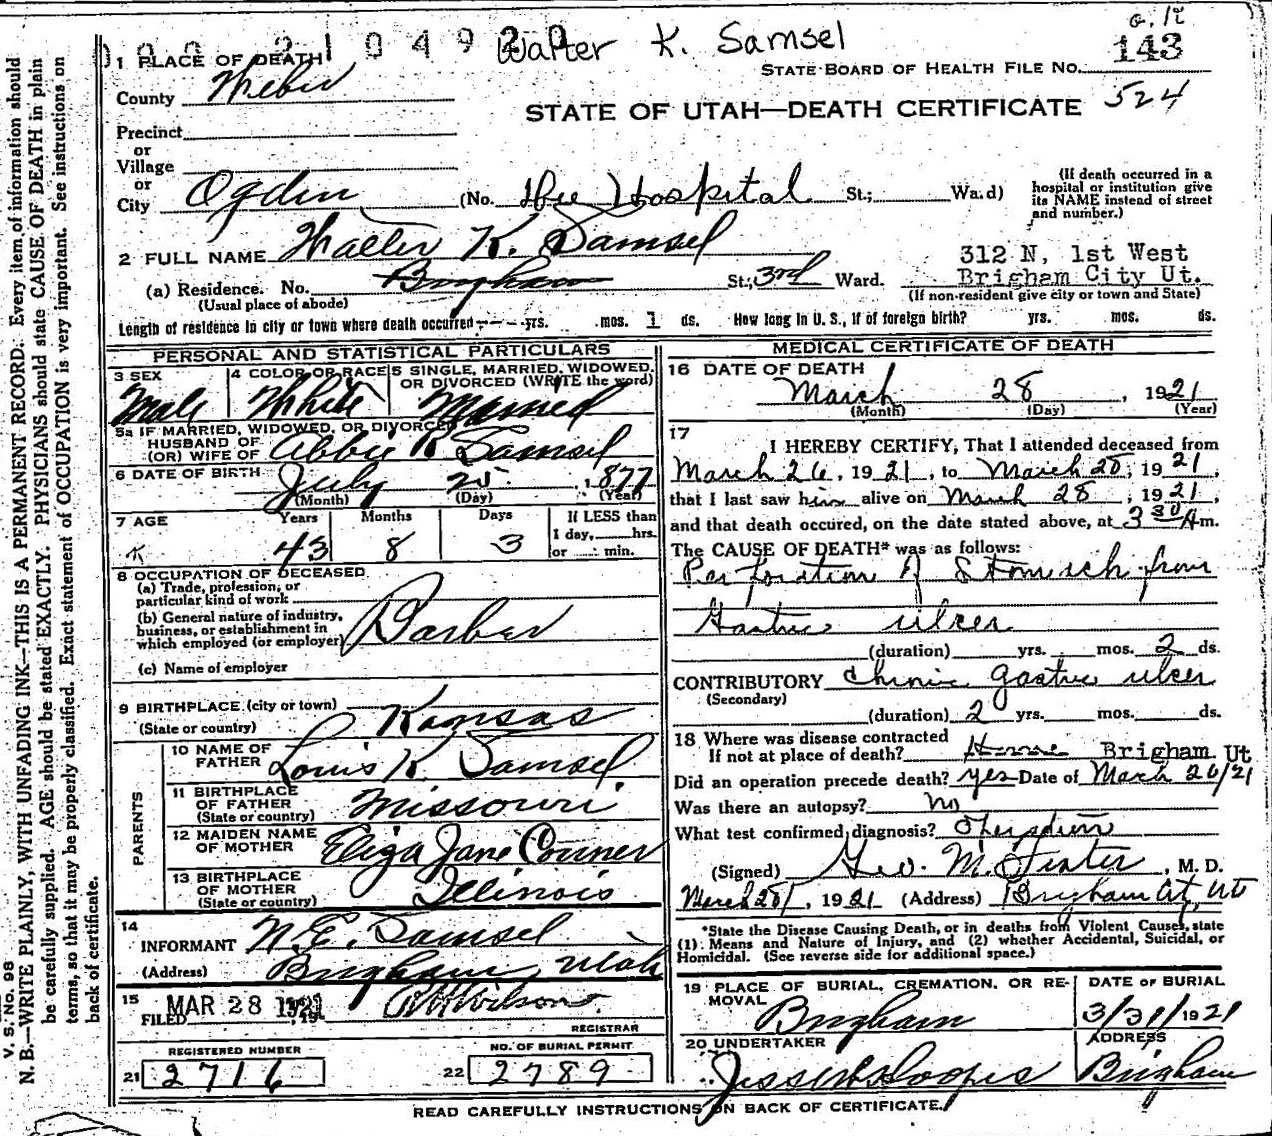 Walter K. Samsel
143
524
STATE BOARD OF HEALTH FILE No.
STATE OF UTAH—DEATH CERTIFICATE
V. S. No. 98
N. B.—WRITE PLAINLY, WITH UNFADING INK—THIS IS A PERMANENT RECORD. Every item of information should
be carefully supplied. AGE should be stated EXACTLY. PHYSICIANS should state CAUSE OF DEATH in plain
terms, so that it may be properly classified. Exact statement of OCCUPATION is very important. See instructions on
back of certificate.
1 PLACE OF DEATH
County Weber
Precinct
or
Village
or
City Ogden (No. Dee Hospital St.; Ward)
(If death occurred in a
hospital or institution give
its NAME instead of street
and number.)
2 FULL NAME Walter K. Samsel
(a) Residence. No. Brigham St.; 3rd Ward.
(Usual place of abode)
312 N, 1st West
Brigham City Ut.
(If non-resident give city or town and State)
Length of residence in city or town where death occurred yrs. mos. 1 ds. How long in U. S., if of foreign birth? yrs. mos. ds.
PERSONAL AND STATISTICAL PARTICULARS
3 SEX 4 COLOR OR RACE 5 SINGLE, MARRIED, WIDOWED,
OR DIVORCED (WRITE the word)
Male White Married
5a IF MARRIED, WIDOWED, OR DIVORCED
HUSBAND OF
(OR) WIFE OF Abbie R Samsel
6 DATE OF BIRTH July 25, 1877
(Month) (Day) (Year)
7 AGE Years Months Days If LESS than
1 day, hrs.
or min.
43 8 3
8 OCCUPATION OF DECEASED
(a) Trade, profession, or
particular kind of work
(b) General nature of industry,
business, or establishment in
which employed (or employer) Barber
(c) Name of employer
9 BIRTHPLACE (city or town)
(State or country) Kansas
PARENTS
10 NAME OF
FATHER Louis K Samsel
11 BIRTHPLACE
OF FATHER
(State or country) Missouri
12 MAIDEN NAME
OF MOTHER Eliza Jane Conner
13 BIRTHPLACE
OF MOTHER
(State or country) Illinois
14
INFORMANT N. E. Samsel
(Address) Brigham, Utah
15
FILED MAR 28 1921
REGISTRAR
REGISTERED NUMBER NO. OF BURIAL PERMIT
21 2716 22 2789
MEDICAL CERTIFICATE OF DEATH
16 DATE OF DEATH
March 28, 1921
(Month) (Day) (Year)
17
I HEREBY CERTIFY, That I attended deceased from
March 26, 1921, to March 28, 1921,
that I last saw him alive on March 28, 1921,
and that death occured, on the date stated above, at 3 30 A m.
The CAUSE OF DEATH* was as follows:
Perforation of Stomach from
Gastric ulcer
(duration) yrs. mos. 2 ds.
CONTRIBUTORY Chronic gastric ulcer
(Secondary)
(duration) 2 yrs. mos. ds.
18 Where was disease contracted
If not at place of death? Home Brigham Ut
Did an operation precede death? yes Date of March 26/21
Was there an autopsy? no
What test confirmed diagnosis?
(Signed) Geo. M. , M. D.
March 28, 1921 (Address) Brigham City, Ut
*State the Disease Causing Death, or in deaths from Violent Causes, state
(1) Means and Nature of Injury, and (2) whether Accidental, Suicidal, or
Homicidal. (See reverse side for additional space.)
19 PLACE OF BURIAL, CREMATION, OR RE-
MOVAL DATE OF BURIAL
Brigham 3/31/1921
20 UNDERTAKER ADDRESS
Brigham
READ CAREFULLY INSTRUCTIONS ON BACK OF CERTIFICATE.